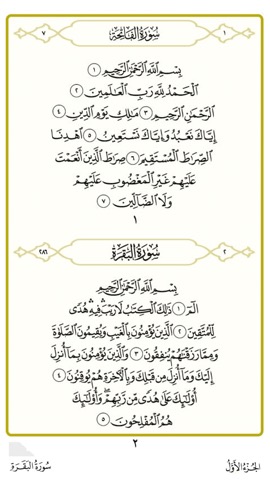 ٧ سُورَةُ الفَاتِحَةِ ١
بِسْمِ ٱللَّهِ ٱلرَّحْمَٰنِ ٱلرَّحِيمِ ١
ٱلْحَمْدُ لِلَّهِ رَبِّ ٱلْعَٰلَمِينَ ٢
ٱلرَّحْمَٰنِ ٱلرَّحِيمِ ٣ مَٰلِكِ يَوْمِ ٱلدِّينِ ٤
إِيَّاكَ نَعْبُدُ وَإِيَّاكَ نَسْتَعِينُ ٥ ٱهْدِنَا
ٱلصِّرَٰطَ ٱلْمُسْتَقِيمَ ٦ صِرَٰطَ ٱلَّذِينَ أَنْعَمْتَ
عَلَيْهِمْ غَيْرِ ٱلْمَغْضُوبِ عَلَيْهِمْ
وَلَا ٱلضَّآلِّينَ ٧
١
٢٨٦ سُورَةُ البَقَرَةِ ٢
بِسْمِ ٱللَّهِ ٱلرَّحْمَٰنِ ٱلرَّحِيمِ
الٓمٓ ١ ذَٰلِكَ ٱلْكِتَٰبُ لَا رَيْبَ ۛ فِيهِ ۛ هُدًى
لِّلْمُتَّقِينَ ٢ ٱلَّذِينَ يُؤْمِنُونَ بِٱلْغَيْبِ وَيُقِيمُونَ ٱلصَّلَوٰةَ
وَمِمَّا رَزَقْنَٰهُمْ يُنفِقُونَ ٣ وَٱلَّذِينَ يُؤْمِنُونَ بِمَآ أُنزِلَ
إِلَيْكَ وَمَآ أُنزِلَ مِن قَبْلِكَ وَبِٱلْءَاخِرَةِ هُمْ يُوقِنُونَ ٤
أُو۟لَٰٓئِكَ عَلَىٰ هُدًى مِّن رَّبِّهِمْ ۖ وَأُو۟لَٰٓئِكَ
هُمُ ٱلْمُفْلِحُونَ ٥
٢
الجُزْءُ الأَوَّلُ
سُورَةُ البَقَرَةِ